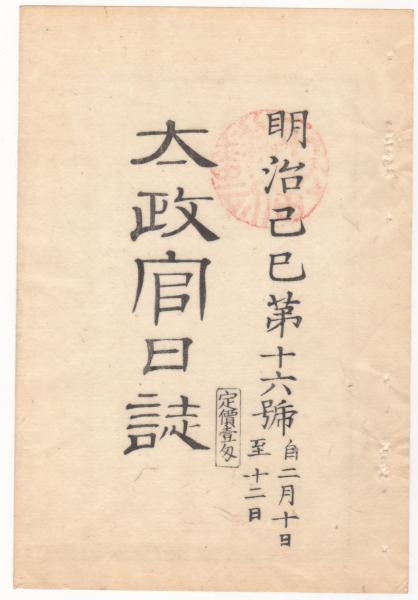 明治己巳第十六號
自二月十日
至十二日
太政官日誌
定價壹匁